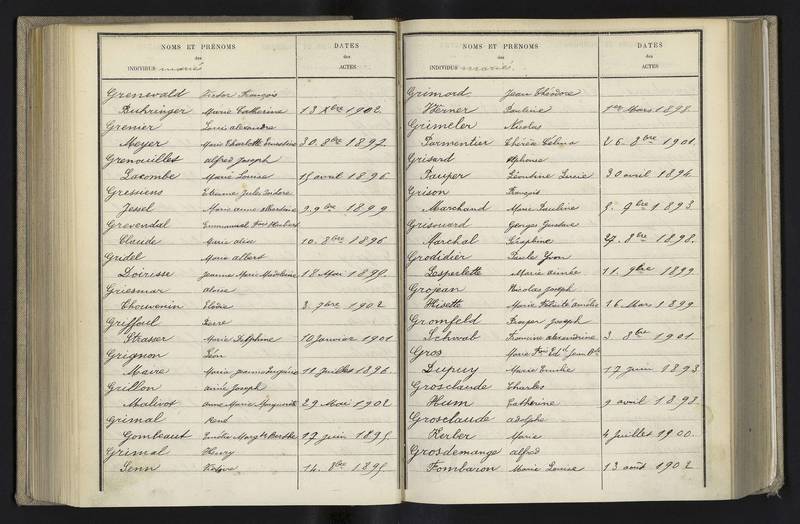 NOMS ET PRÉNOMS
des
INDIVIDUS marié
DATES
des
ACTES
Grenewald Victor François
Buhringer Marie Catherine 13 Xbre 1902
Grenier Louis alexandre
Meyer Marie Charlotte Ernestine 30. 8bre 1897
Grenouillet alfred Joseph
Lacombe Marie Louise 15 avril 1896
Gressiens Etienne Jules Isidore
Jessel Marie anne 9. 9bre 1899
Grevendal Emmanuel Hubert
Claude Marie alice 10. 8bre 1896
Gridel Marie albert
Loiresse Jeanne Marie Madeleine 18 Mai
Griesmar aloise
Thouvenin Elodie 3. 7bre 1902
Griffoul Pierre
Strasser Marie Delphine 10 Janvier 1901
Grignon Léon
Maire Marie Jeanne Eugénie 11 Juillet 1896
Grillon aimé Joseph
Malivot anne Marie Marguerite 29 Mai 1902
Grimal René
Gombeaut Emélie Margte Berthe 17 juin
Grimal Henry
Senn 14. 8bre
NOMS ET PRÉNOMS
des
INDIVIDUS marié
DATES
des
ACTES
Grimard Jean Théodore
Werner Pauline 1er Mars 1898
Grimeler Nicolas
Parmentier Thérèse Célina 26. 8bre 1901
Grisard Alphonse
Pauper Léontine Lucie 30 avril 1896
Grison François
Marchand Marie Pauline 9bre 1893
Grisouard Georges Gustave
Marchal Séraphine 27. 8bre 1898
Grodidier Paul Yvon
Lesperlette Marie aimée 11. 9bre 1899
Grojean Nicolas Joseph
Hisette Marie Félicité amélie 16 Mars 1899
Gromfeld Prosper Joseph
Schwab Francine alexandrine 3. 8bre 1901
Gros Marie Fois Edd Jean Bte
Dupuy Marie Emilie 17 juin 1893
Grosclaude Charles
Hum Catherine 9 avril 1898
Grosclaude adolphe
Kerber Marie 4 Juillet 1900
Grosdemange alfred
Fombaron Marie Louise 13 août 1902